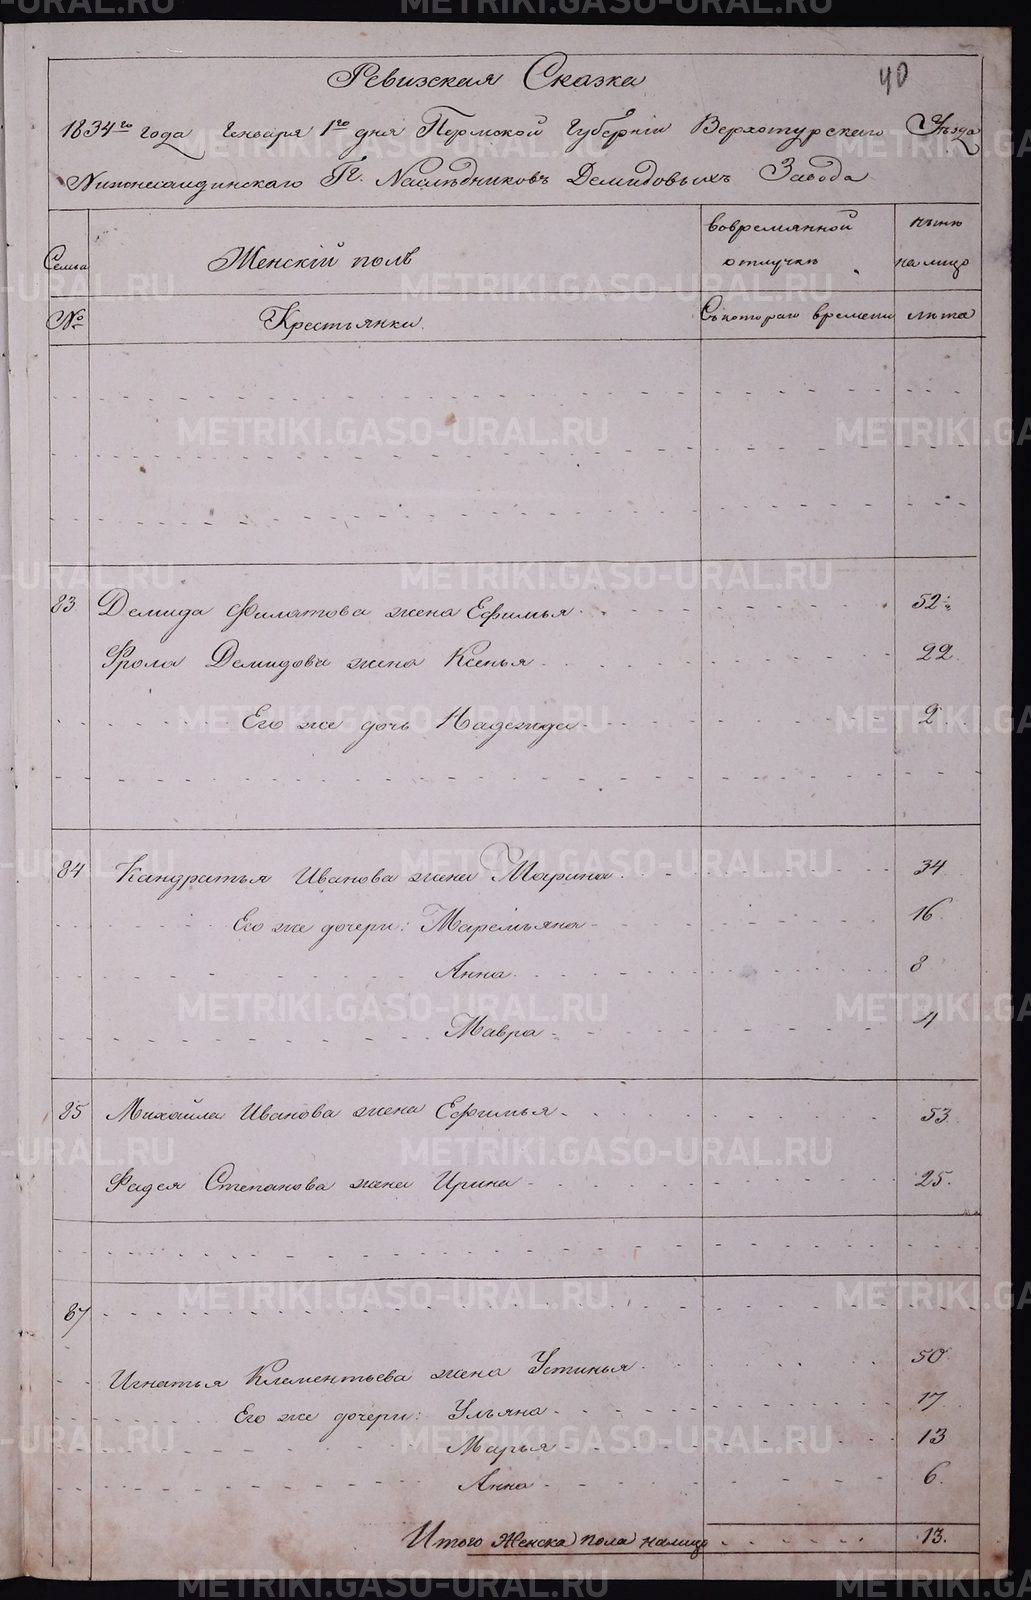 40
Ревизская Сказка
1834го года Генваря 1го дня Пермской Губернiи Верхотурскаго Уѣзда
Нижнесалдинскаго Гг. Наслѣдниковъ Демидовыхъ Завода
Семьи Женскiй полъ вовремянной отлучкѣ нынѣ на лицо
№ Крестьянки. Съкотораго времени лѣта
83 Демида Филатова жена Ефимья 52
Фрола Демидова жена Ксенья 22.
Его же дочь Надежда 2
84 Кандратья Иванова жена Марина 34
Его же дочери: Маремьяна 16.
Анна 8
Мавра 4
85 Михайла Иванова жена Ефимья 53
Фадея Степанова жена Ирина 25.
87
Игнатья Клементьева жена Устинья 50
Его же дочери: Ульяна 17
Марья 13
Анна 6.
Итого Женска пола налицо 13.
METRIKI.GASO-URAL.RU